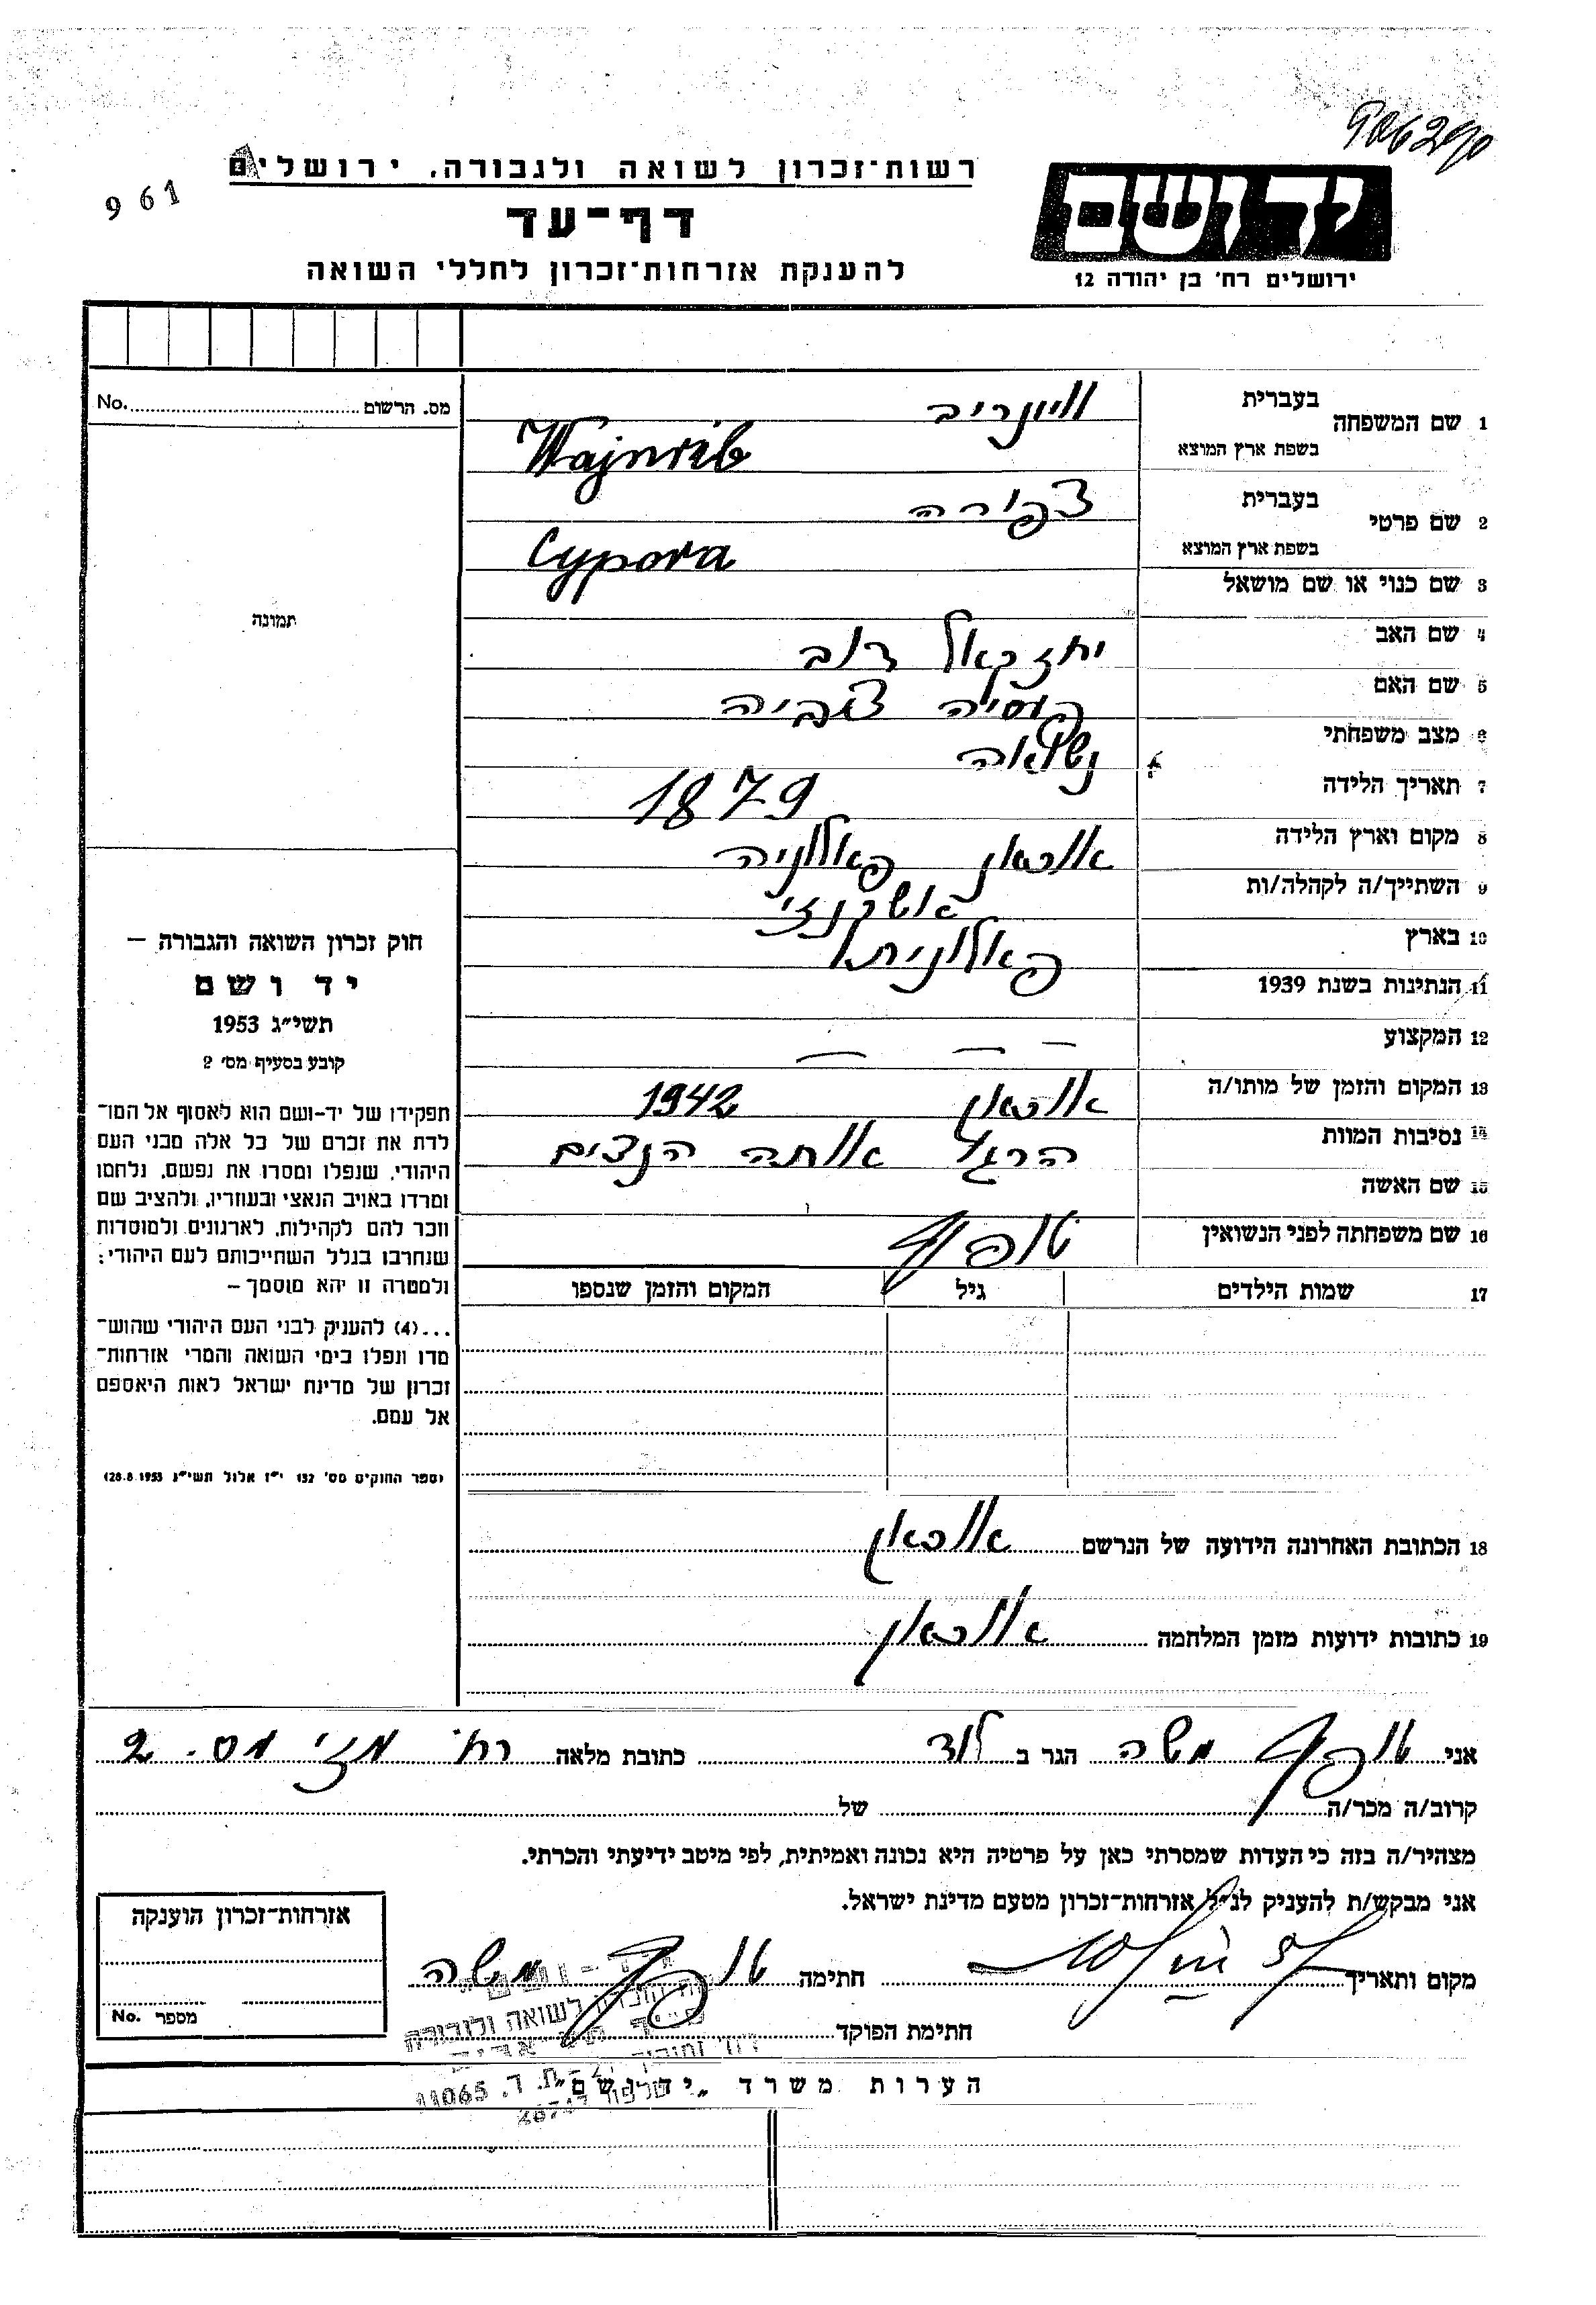 רשות־זכרון לשואה ולגבורה, ירושלים
961
דף־עד
להענקת אזרחות־זכרון לחללי השואה
יד ושם
ירושלים רח' בן יהודה 12
No. מס. הרשום
תמונה
1 שם המשפחה
בעברית וויינריב
בשפת ארץ המוצא Wajnrib
2 שם פרטי
בעברית צפורה
בשפת ארץ המוצא Cypora
3 שם כנוי או שם מושאל
4 שם האב יחזקאל דוב
5 שם האם צביה
6 מצב משפחתי נשואה
7 תאריך הלידה 1879
8 מקום וארץ הלידה פאלניה
9 השתייך/ה לקהלה/ות אשכנזי
10 בארץ
11 הנתינות בשנת 1939
12 המקצוע — — —
13 המקום והזמן של מותו/ה 1942
14 נסיבות המוות
15 שם האשה
16 שם משפחתה לפני הנשואין טופף
17 שמות הילדים גיל המקום והזמן שנספו
18 הכתובת האחרונה הידועה של הנרשם
19 כתובות ידועות מזמן המלחמה
חוק זכרון השואה והגבורה –
יד ושם
תשי"ג 1953
קובע בסעיף מס' 2
תפקידו של יד-ושם הוא לאסוף אל המו־
לדת את זכרם של כל אלה מבני העם
היהודי, שנפלו ומסרו את נפשם, נלחמו
ומרדו באויב הנאצי ובעוזריו, ולהציב שם
וזכר להם לקהילות, לארגונים ולמוסדות
שנחרבו בגלל השתייכותם לעם היהודי;
ולמטרה זו יהא מוסמך –
...(4) להעניק לבני העם היהודי שהוש־
מדו ונפלו בימי השואה והמרי אזרחות־
זכרון של מדינת ישראל לאות היאספם
אל עמם.
(ספר החוקים מס' 132 י"ז אלול תשי"ג 28.8.1953)
אני טופף משה הגר ב לוד כתובת מלאה רח' מזי מס. 2
קרוב/ה מכר/ה של
מצהיר/ה בזה כי העדות שמסרתי כאן על פרטיה היא נכונה ואמיתית, לפי מיטב ידיעתי והכרתי.
אני מבקש/ת להעניק לנ"ל אזרחות־זכרון מטעם מדינת ישראל.
מקום ותאריך חתימה טופף משה
חתימת הפוקד
אזרחות־זכרון הוענקה
No. מספר
יד-ושם
לשואה ולגבורה
ת.ד. 11065
הערות משרד "יד ושם"